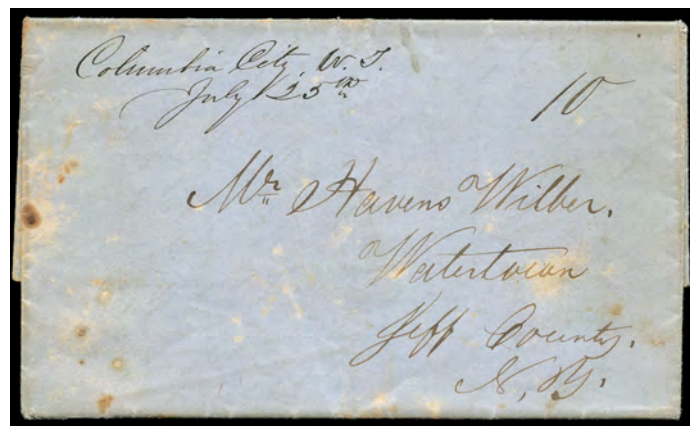 Columbia City, W. T.
July 25th
10
Mr Havens Wilber.
Watertown
Jeff County.
N, Y.